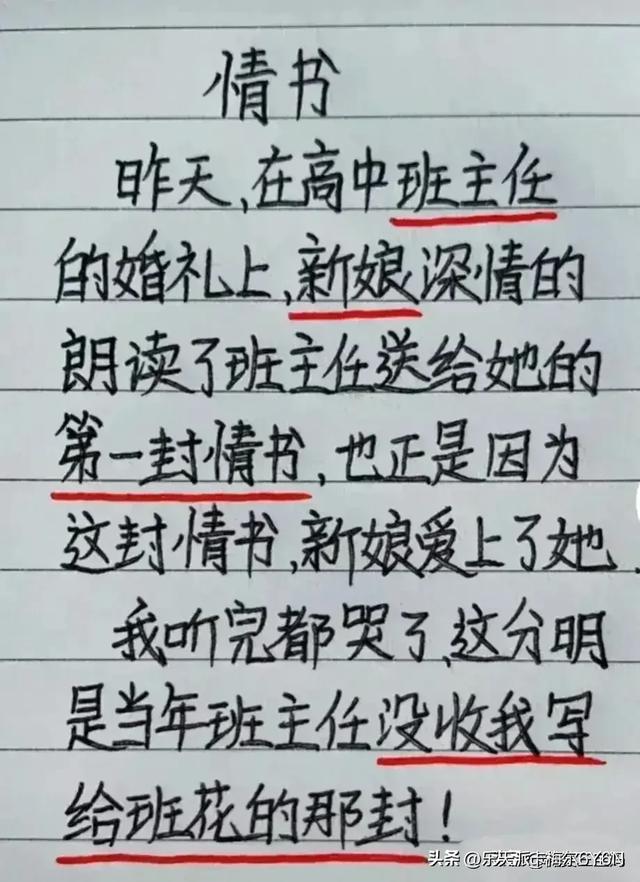 情书
昨天,在高中班主任
的婚礼上,新娘深情的
朗读了班主任送给她的
第一封情书,也正是因为
这封情书,新娘爱上了她.
我听完都哭了,这分明
是当年班主任没收我写
给班花的那封!